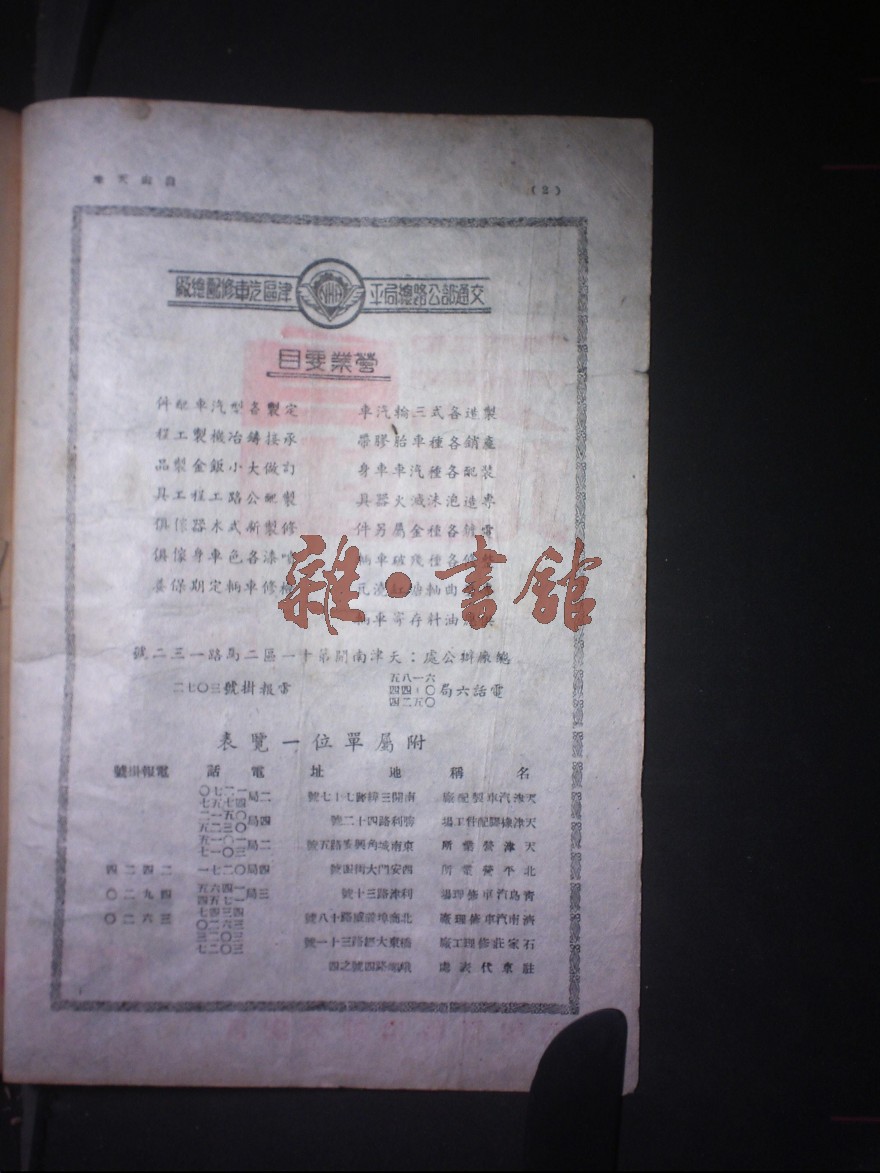 (2)
交通部公路總局平津區汽車修配總廠
營業要目
製造各式三輪汽車
產銷各種車胎膠帶
裝配各種汽車車身
專造泡沫滅火器具
電 各種金屬另件
各種殘破車輛
曲軸搪缸澆瓦
油料存寄車輛
定製各型汽車配件
承接鑄冶機製工程
訂做大小鈑金製品
製配公路工程工具
修製新式木器傢俱
噴漆各色車身傢俱
檢修車輛定期保養
總廠辦公處:天津南開第十一區二馬路一三二號
電話六局 六一八五 〇四四 〇五二四
電報掛號三〇七二
附屬單位一覽表
名稱 地址 電話 電報掛號
天津汽車製配廠 南開三緯路七十七號 二局 一二七〇 四七五七
天津橡膠配件工場 利路四十二號 四局 〇五一二 〇三二五
天津營業所 東南城角興 路五號 二局 一〇一五 三〇一七
北平營業所 西安門大街 號 四局〇二七一 二四二四
青島汽車修理場 利津路三十號 三局 一四六五 一七五四 四九二〇
濟南汽車修理廠 北商埠 威路十八號 四三四七 三六二〇 三六二〇
石家莊修理工廠 橋東大經路三十一號 三〇二三 三〇二七
駐京代表處 峨嵋路四號之四
雜·書館